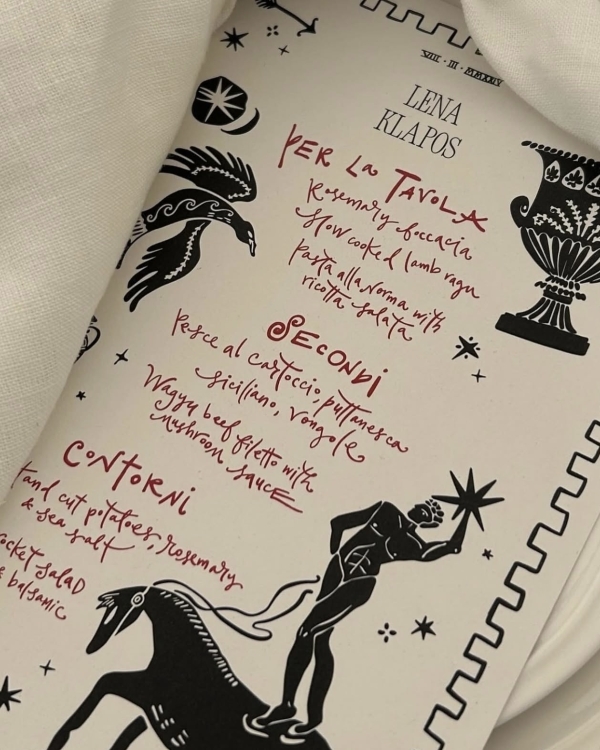 VIII · III · MMXXIV
LENA
KLAPOS
PER La TAVOLA
Rosemary foccacia
Slow cooked lamb ragu
Pasta alla Norma with
ricotta salata
SECONDI
Pesce al cartoccio, puttanesca
siciliano, vongole
Wagyu beef filetto with
mushroom sauce
CONTORNI
and cut potatoes, rosemary
& sea salt
ocket salad
& balsamic